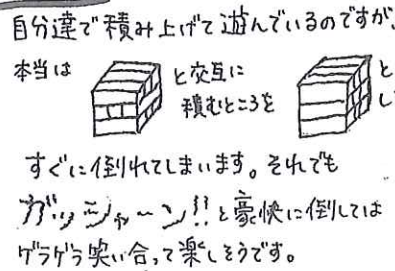 自分達で積み上げて遊んでいるのですが、
本当は と交互に
積むところを と
し
すぐに倒れてしまいます。それでも
ガッシャーン!!と豪快に倒しては
ゲラゲラ笑い合って楽しそうです。